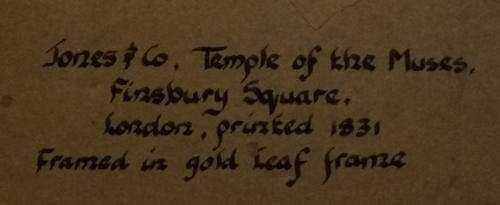 Jones & Co. Temple of the Muses.
Finsbury Square.
London, printed 1831
Framed in gold leaf frame